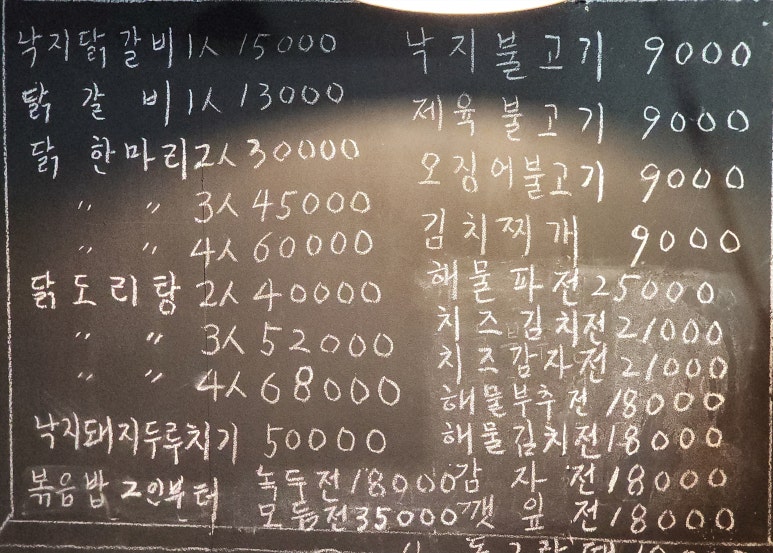 낙지닭갈비 1人 15000
닭갈비 1人 13000
닭한마리 2人 30000
〃 〃 3人 45000
〃 〃 4人 60000
닭도리탕 2人 40000
〃 〃 3人 52000
〃 〃 4人 68000
낙지돼지두루치기 50000
볶음밥 2인부터
낙지불고기 9000
제육불고기 9000
오징어불고기 9000
김치찌개 9000
해물파전 25000
치즈김치전 21000
치즈감자전 21000
해물부추전 18000
해물김치전 18000
녹두전 18000 감자전 18000
모듬전 35000 깻잎전 18000